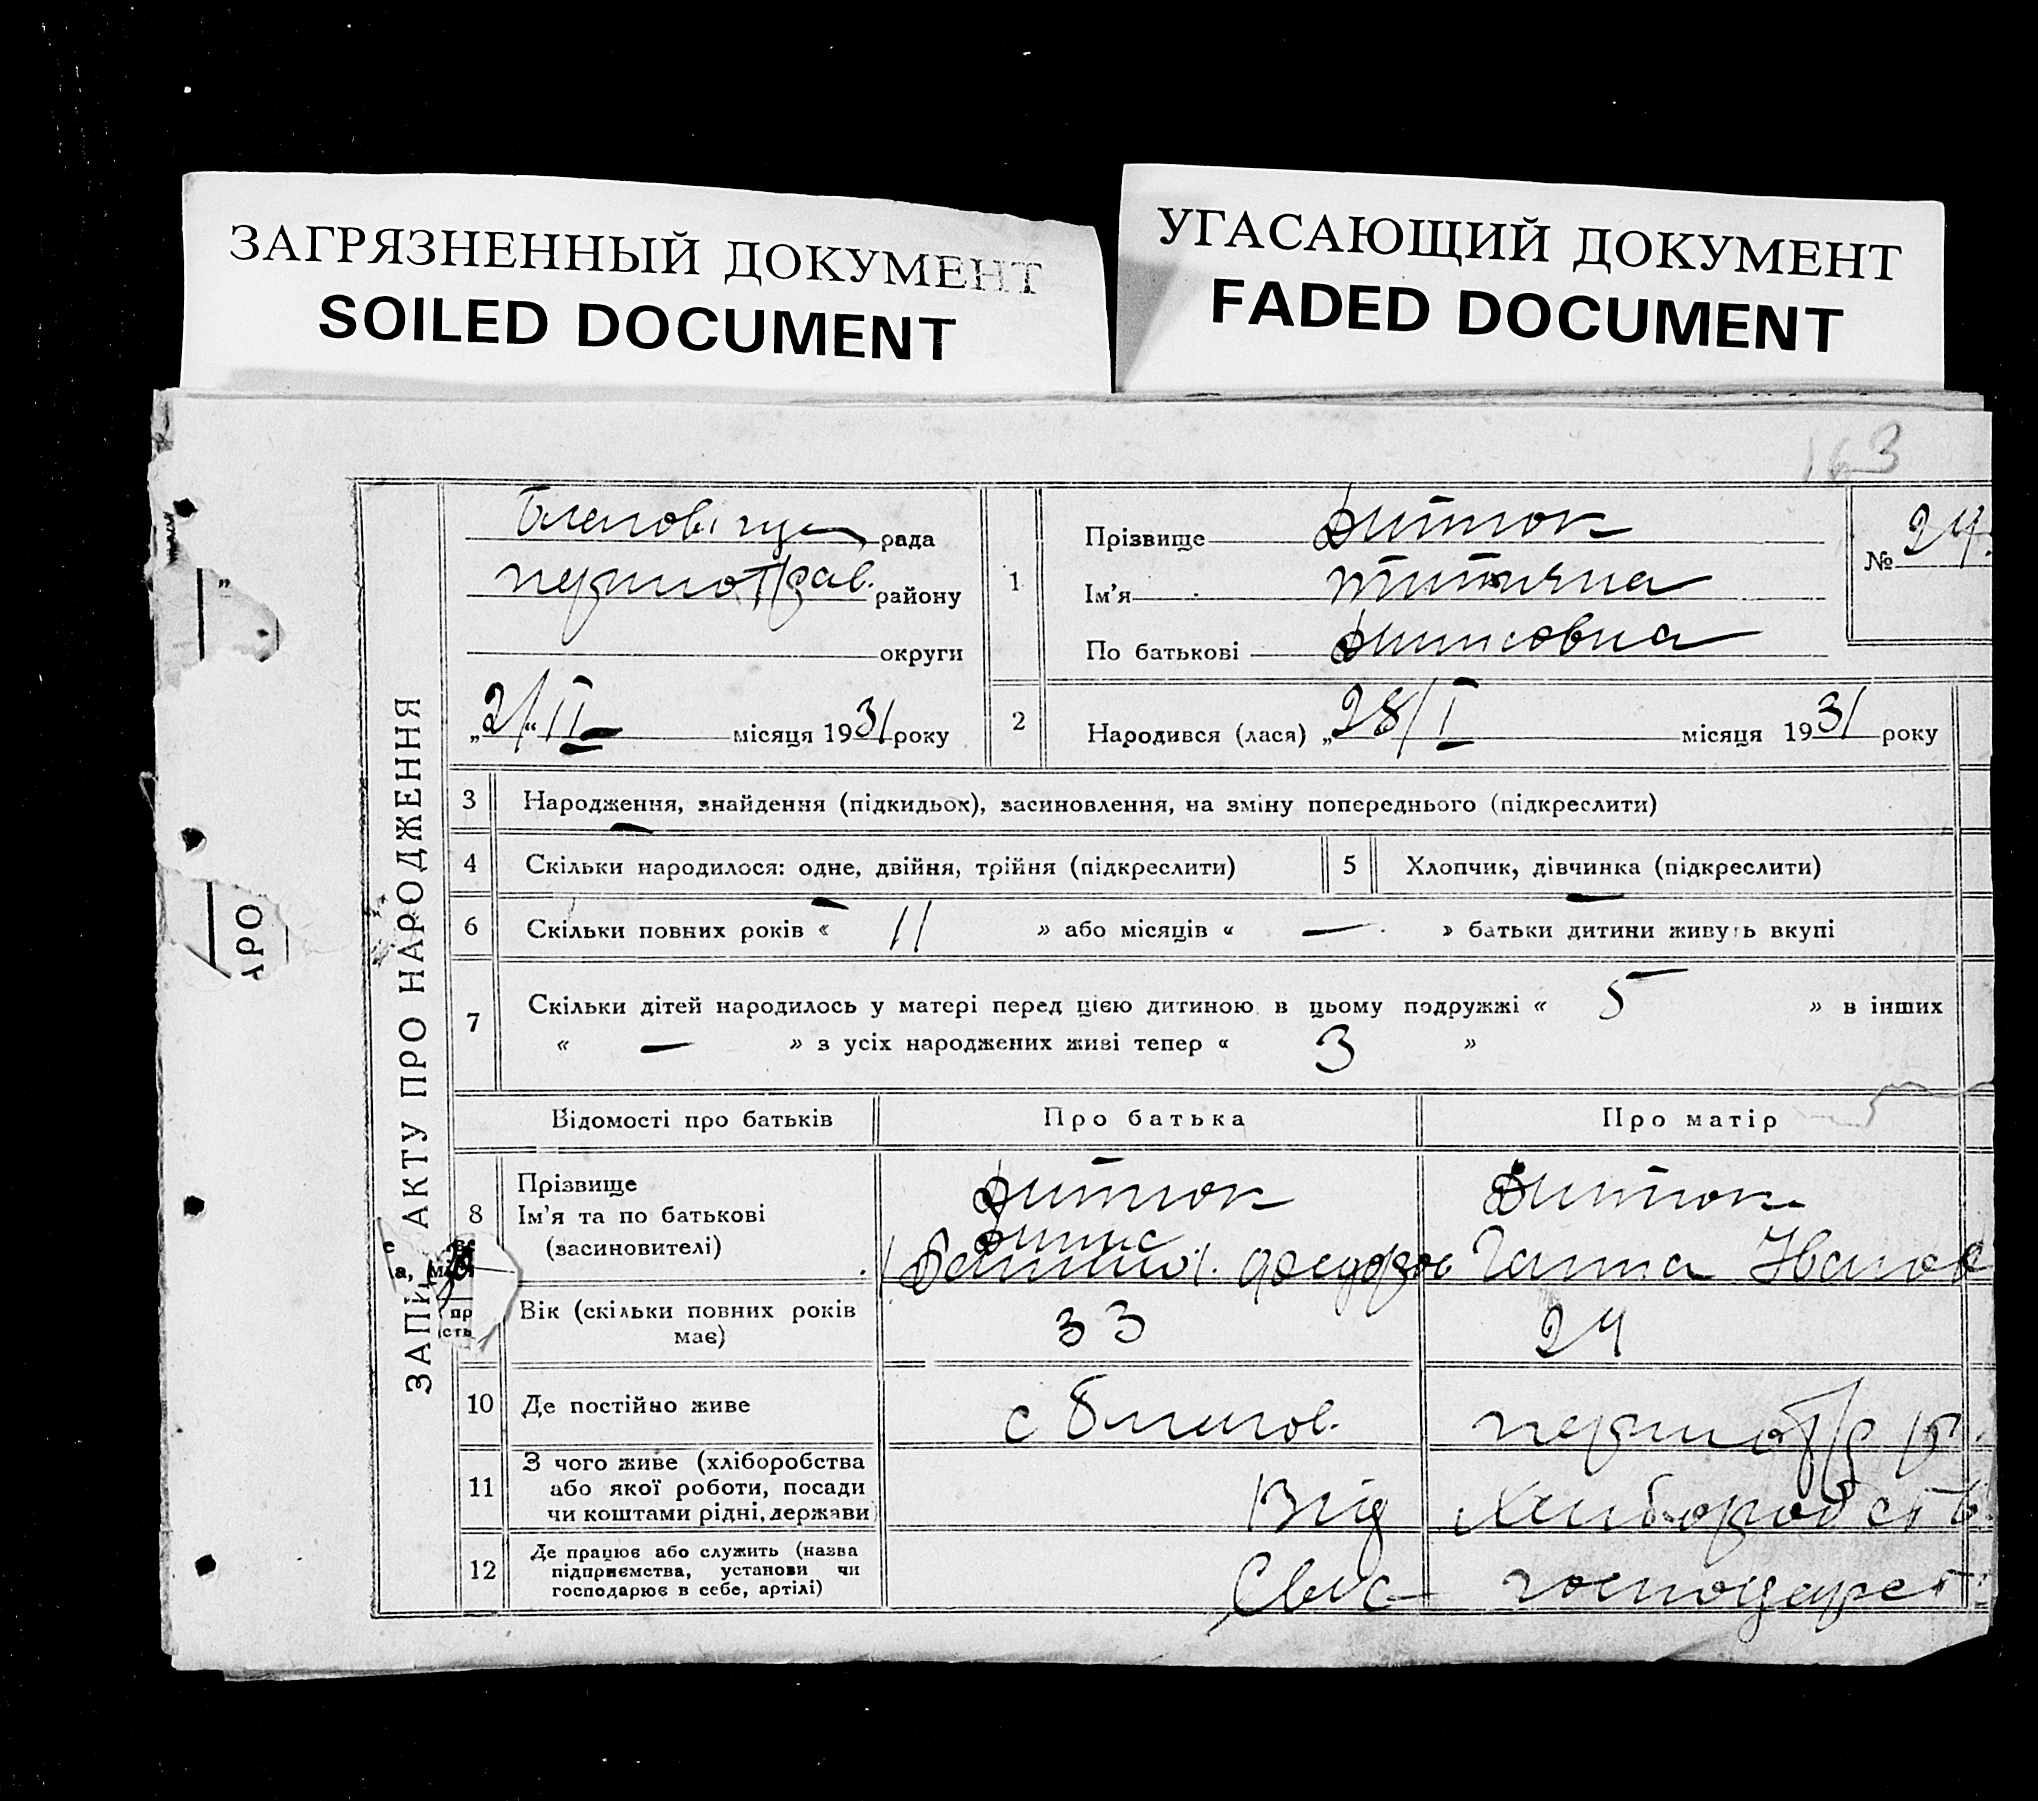 ЗАГРЯЗНЕННЫЙ ДОКУМЕНТ
SOILED DOCUMENT
УГАСАЮЩИЙ ДОКУМЕНТ
FADED DOCUMENT
163
ЗАПИ АКТУ ПРО НАРОДЖЕННЯ
рада
району
округи
„2/“ II місяця 1931 року
1
Прізвище
Ім'я
По батькові
№ 24
2
Народився (лася) „28/I місяця 1931 року
3 Народження, знайдення (підкидьок), засиновлення, на зміну попереднього (підкреслити)
4 Скільки народилося: одне, двійня, трійня (підкреслити)
5 Хлопчик, дівчинка (підкреслити)
6 Скільки повних років « 11 » або місяців « — » батьки дитини живуть вкупі
7 Скільки дітей народилось у матері перед цією дитиною в цьому подружжі « 5 » в інших
« — » з усіх народжених живі тепер « 3 »
Відомості про батьків Про батька Про матір
8 Прізвище
Ім'я та по батькові
(засиновителі)
Ганна Іванов
Вік (скільки повних років
має)
33 24
10 Де постійно живе
11 З чого живе (хліборобства
або якої роботи, посади
чи коштами рідні, держави
Від хліборобств
12 Де працює або служить (назва
підприємства, установи чи
господарює в себе, артілі)
господарст
АРО